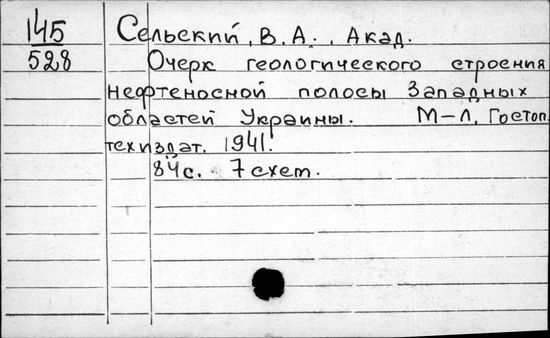 145
528
Сельский, В.А., Акад.
Очерк геологического строения
нефтеносной полосы Западных
областей Украины. М-Л, Гостоп.
техиздат. 1941.
84с. 7 схем.